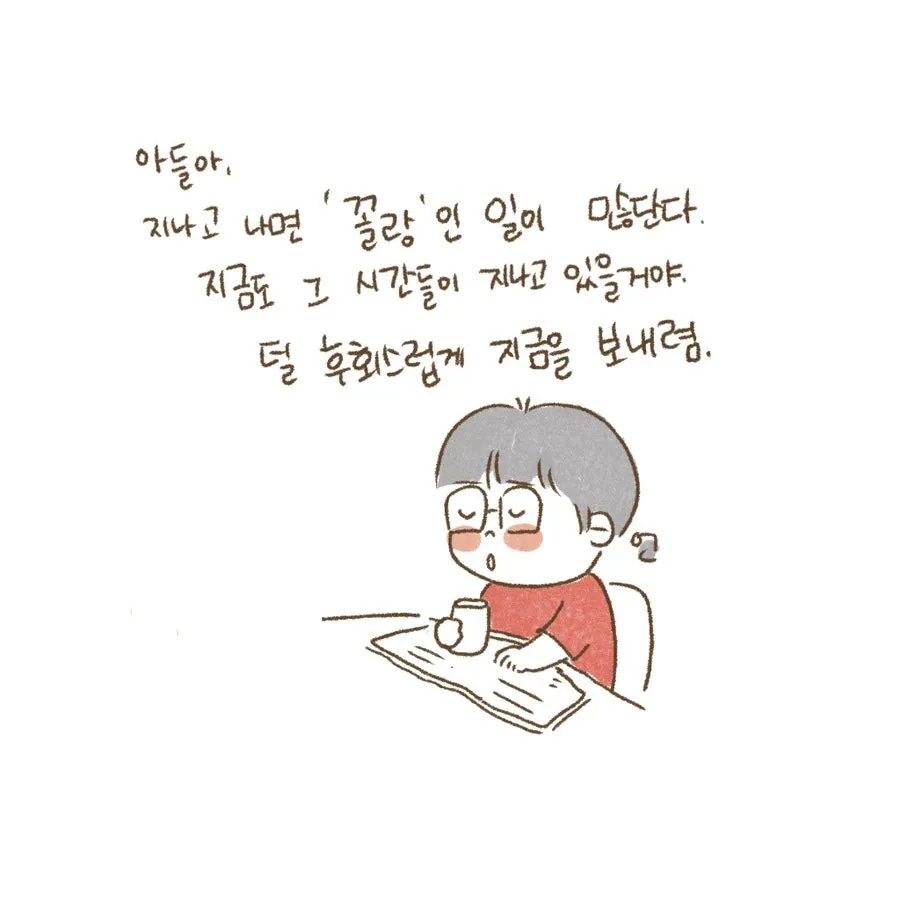 아들아,
지나고 나면 '꼴랑'인 일이 많단다.
지금도 그 시간들이 지나고 있을거야.
덜 후회스럽게 지금을 보내렴.